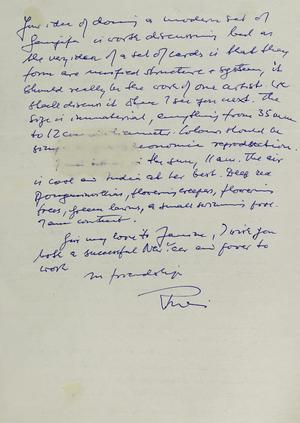 Your idea of doing a modern set of
Ganjifa is worth discussing but as
the very idea of a set of cards is that they
form are unified structure & system, it
should really be the work of one artist. We
shall discuss it when I see you next. The
size is immaterial, anything from 35 mm
to 12 cm Colours should be
economic reproduction.
in the sun, 11 am. The air
is cool an India at her best. Deep red
Bougainvillias, flowering creeper, flowering
trees, green lawns, a small swimming pool.
I am content.
Give my love to Janine, I wish you
both a successful New Year and power to
work
in friendship